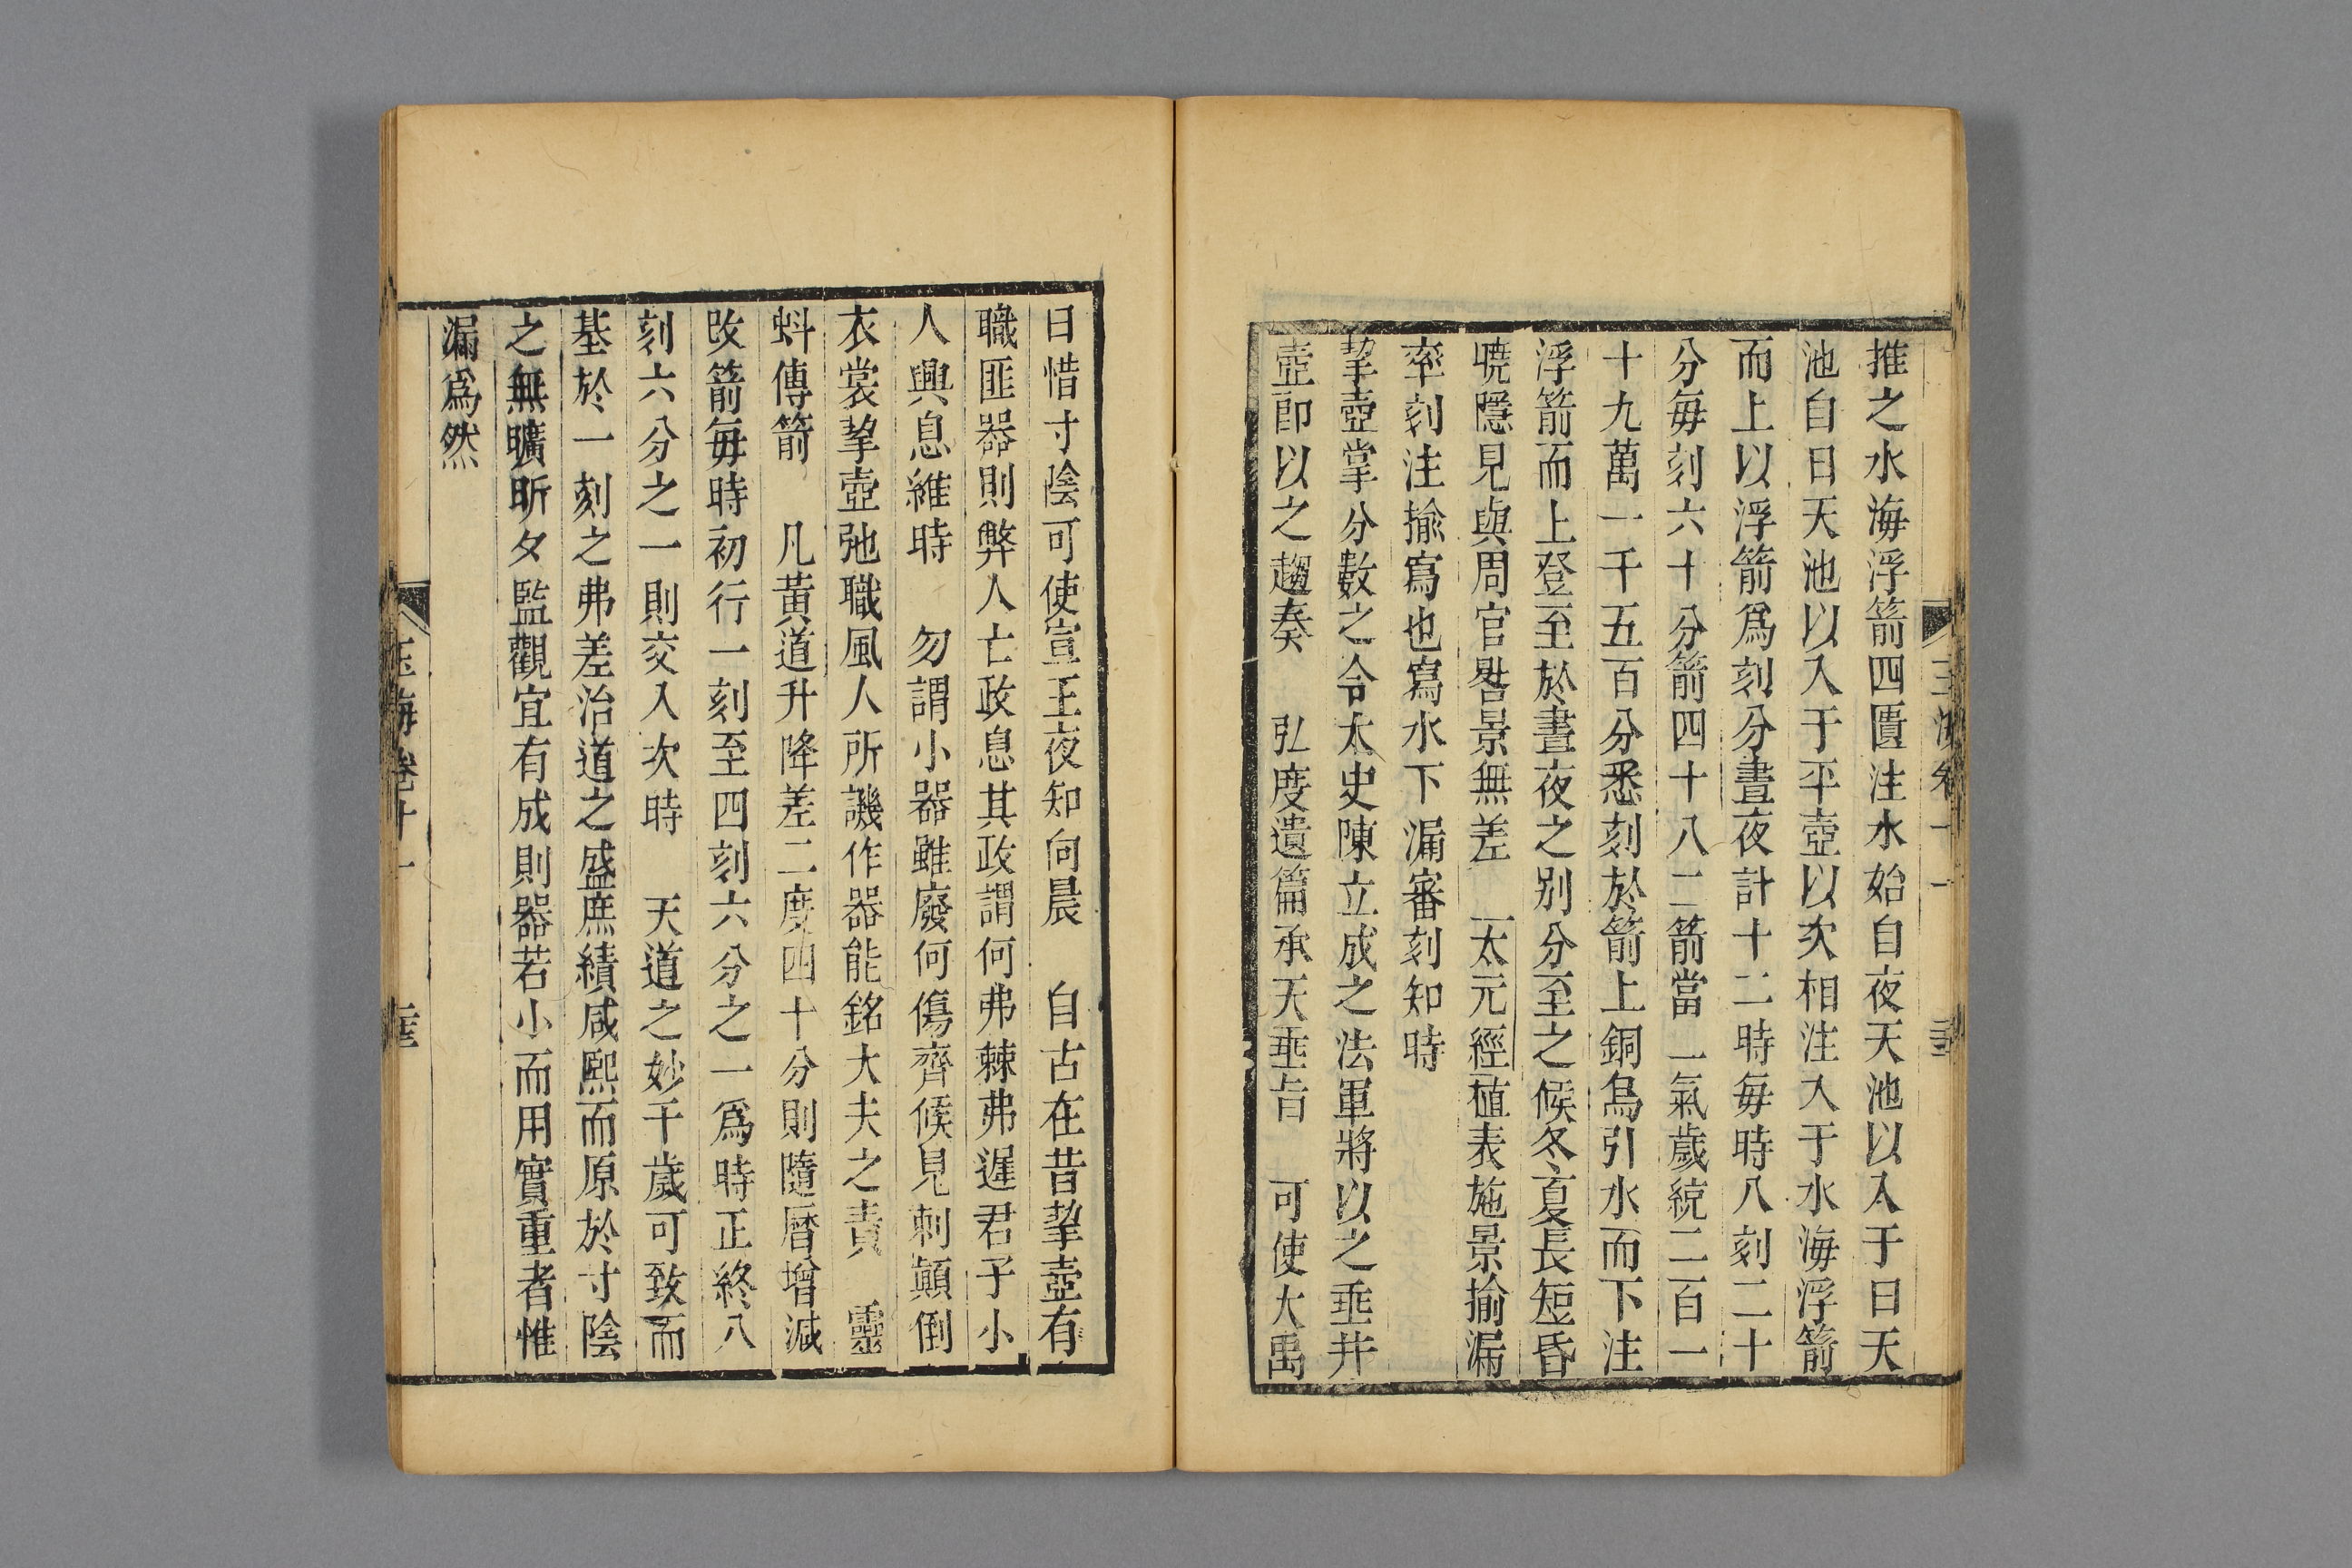 推之水海浮箭四匱注水始自夜天池以入于日天
池自日天池以入于平壺以次相注入于水海浮箭
而上以浮箭爲刻分晝夜計十二時每時八刻二十
分每刻六十分箭四十八二箭當一氣歲統二百一
十九萬一千五百分悉刻於箭上銅烏引水而下注
浮箭而上登至於晝夜之别分至之候冬夏長短昏
曉隱見與周官晷景無差　太元經植表施景揄漏
率刻注揄寫也寫水下漏審刻知時
挈壺掌分數之令太史陳立成之法軍將以之垂井
壺郎以之趨奏　弘度遺篇承天垂旨　可使大禹
日惜寸陰可使宣王夜知向晨　自古在昔挈壺有
職匪器則弊人亡政息其政謂何弗棘弗遲君子小
人興息維時　勿謂小器雖廢何傷齊候見刺顛倒
衣裳挈壺弛職風人所譏作器能銘大夫之責　靈
蚪傳箭　凡黃道升降差二度四十分則隨曆增減
改箭每時初行一刻至四刻六分之一爲時正終八
刻六分之一則交入次時　天道之妙千歲可致而
基於一刻之弗差治道之盛庶績咸熙而原於寸陰
之無曠昕夕監觀宜有成則器若小而用實重者惟
漏爲然
玉海卷十一